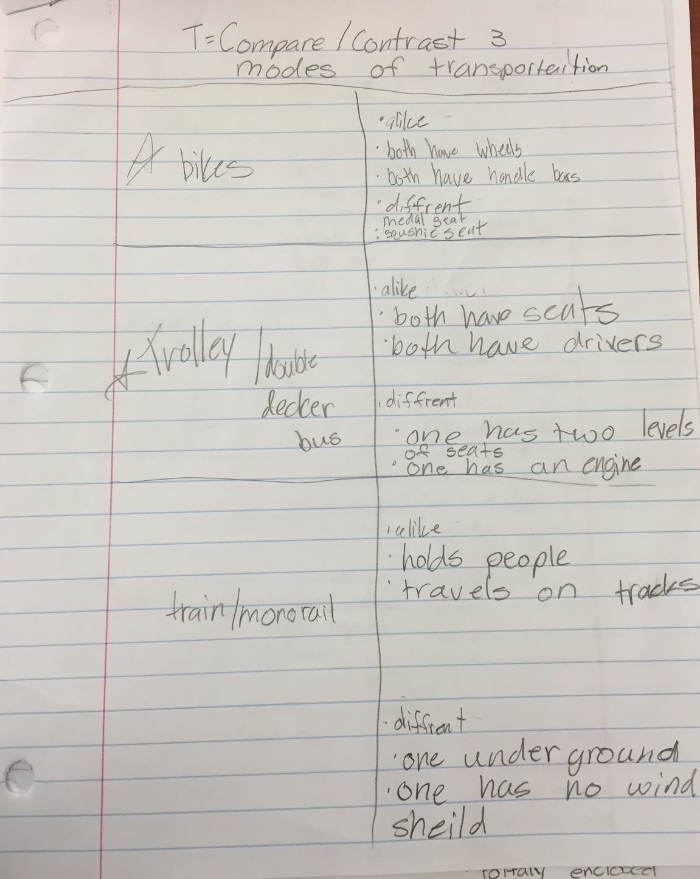 T=Compare/Contrast 3
modes of transportaition
A bikes
• alike
• both have wheels
• both have handle bars
• diffrent
medal seat
• squshie seat
trolley/double
decker
bus
• alike
• both have seats
• both have drivers
• diffrent
• one has two levels
of seats
• one has an engine
train/monorail
• alike
• holds people
• travels on tracks
• diffrent
• one under ground
• one has no wind
sheild
enclosed